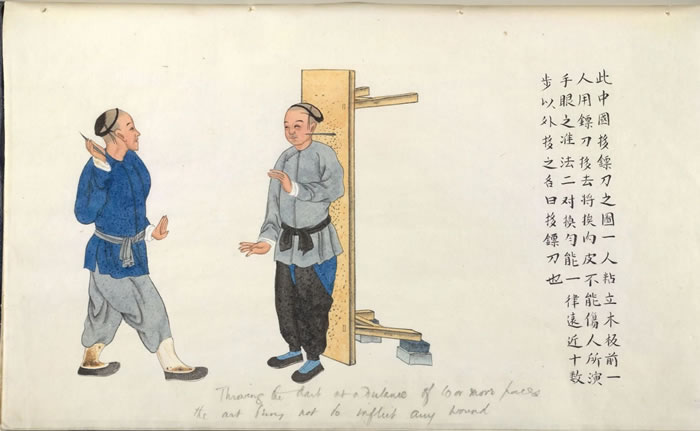 此中國鏢刀之圖一人粘立木板前一
人用鏢刀去將挨肉皮不能傷人所演
手眼之准法二对換匀能一律遠近十數
步以外之名曰鏢刀也
Throwing the dart at a distance of 10 or more paces
the art being not to inflict any wound